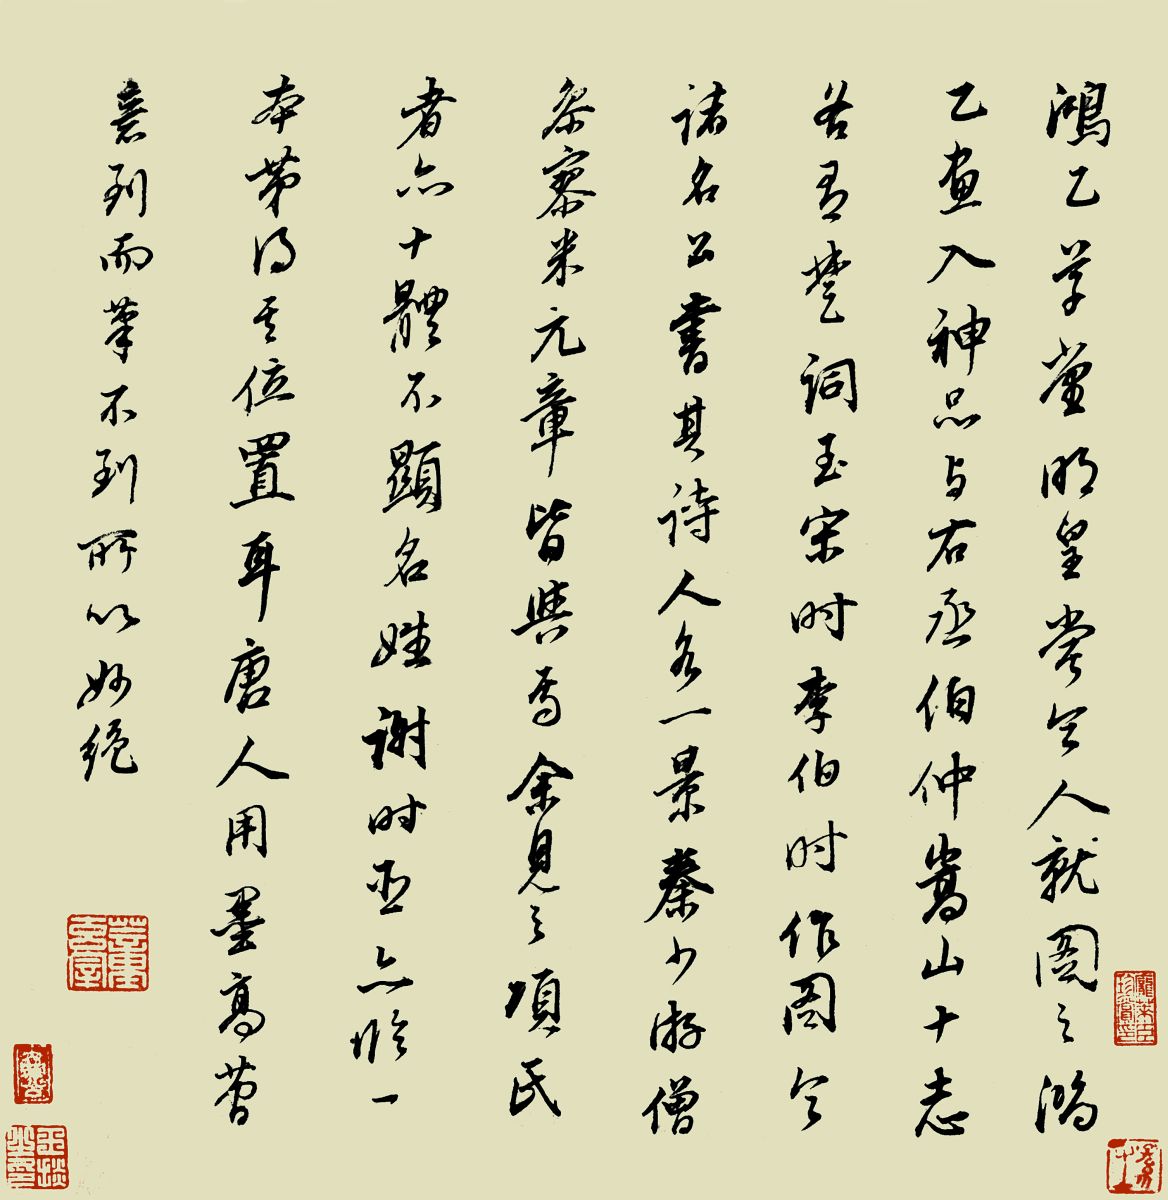 鴻乙草堂明皇嘗令人就圖之鴻
乙畫入神品与右丞伯仲嵩山十志
各有楚詞至宋时李伯时作图令
諸名公書其詩人各一景秦少游僧
參寥米元章皆與焉余見之項氏
者亦十體不顯名姓謝时臣亦臨一
本第得其位置耳唐人用墨高
意到而筆不到所以妙絕
龐萊臣珍賞印